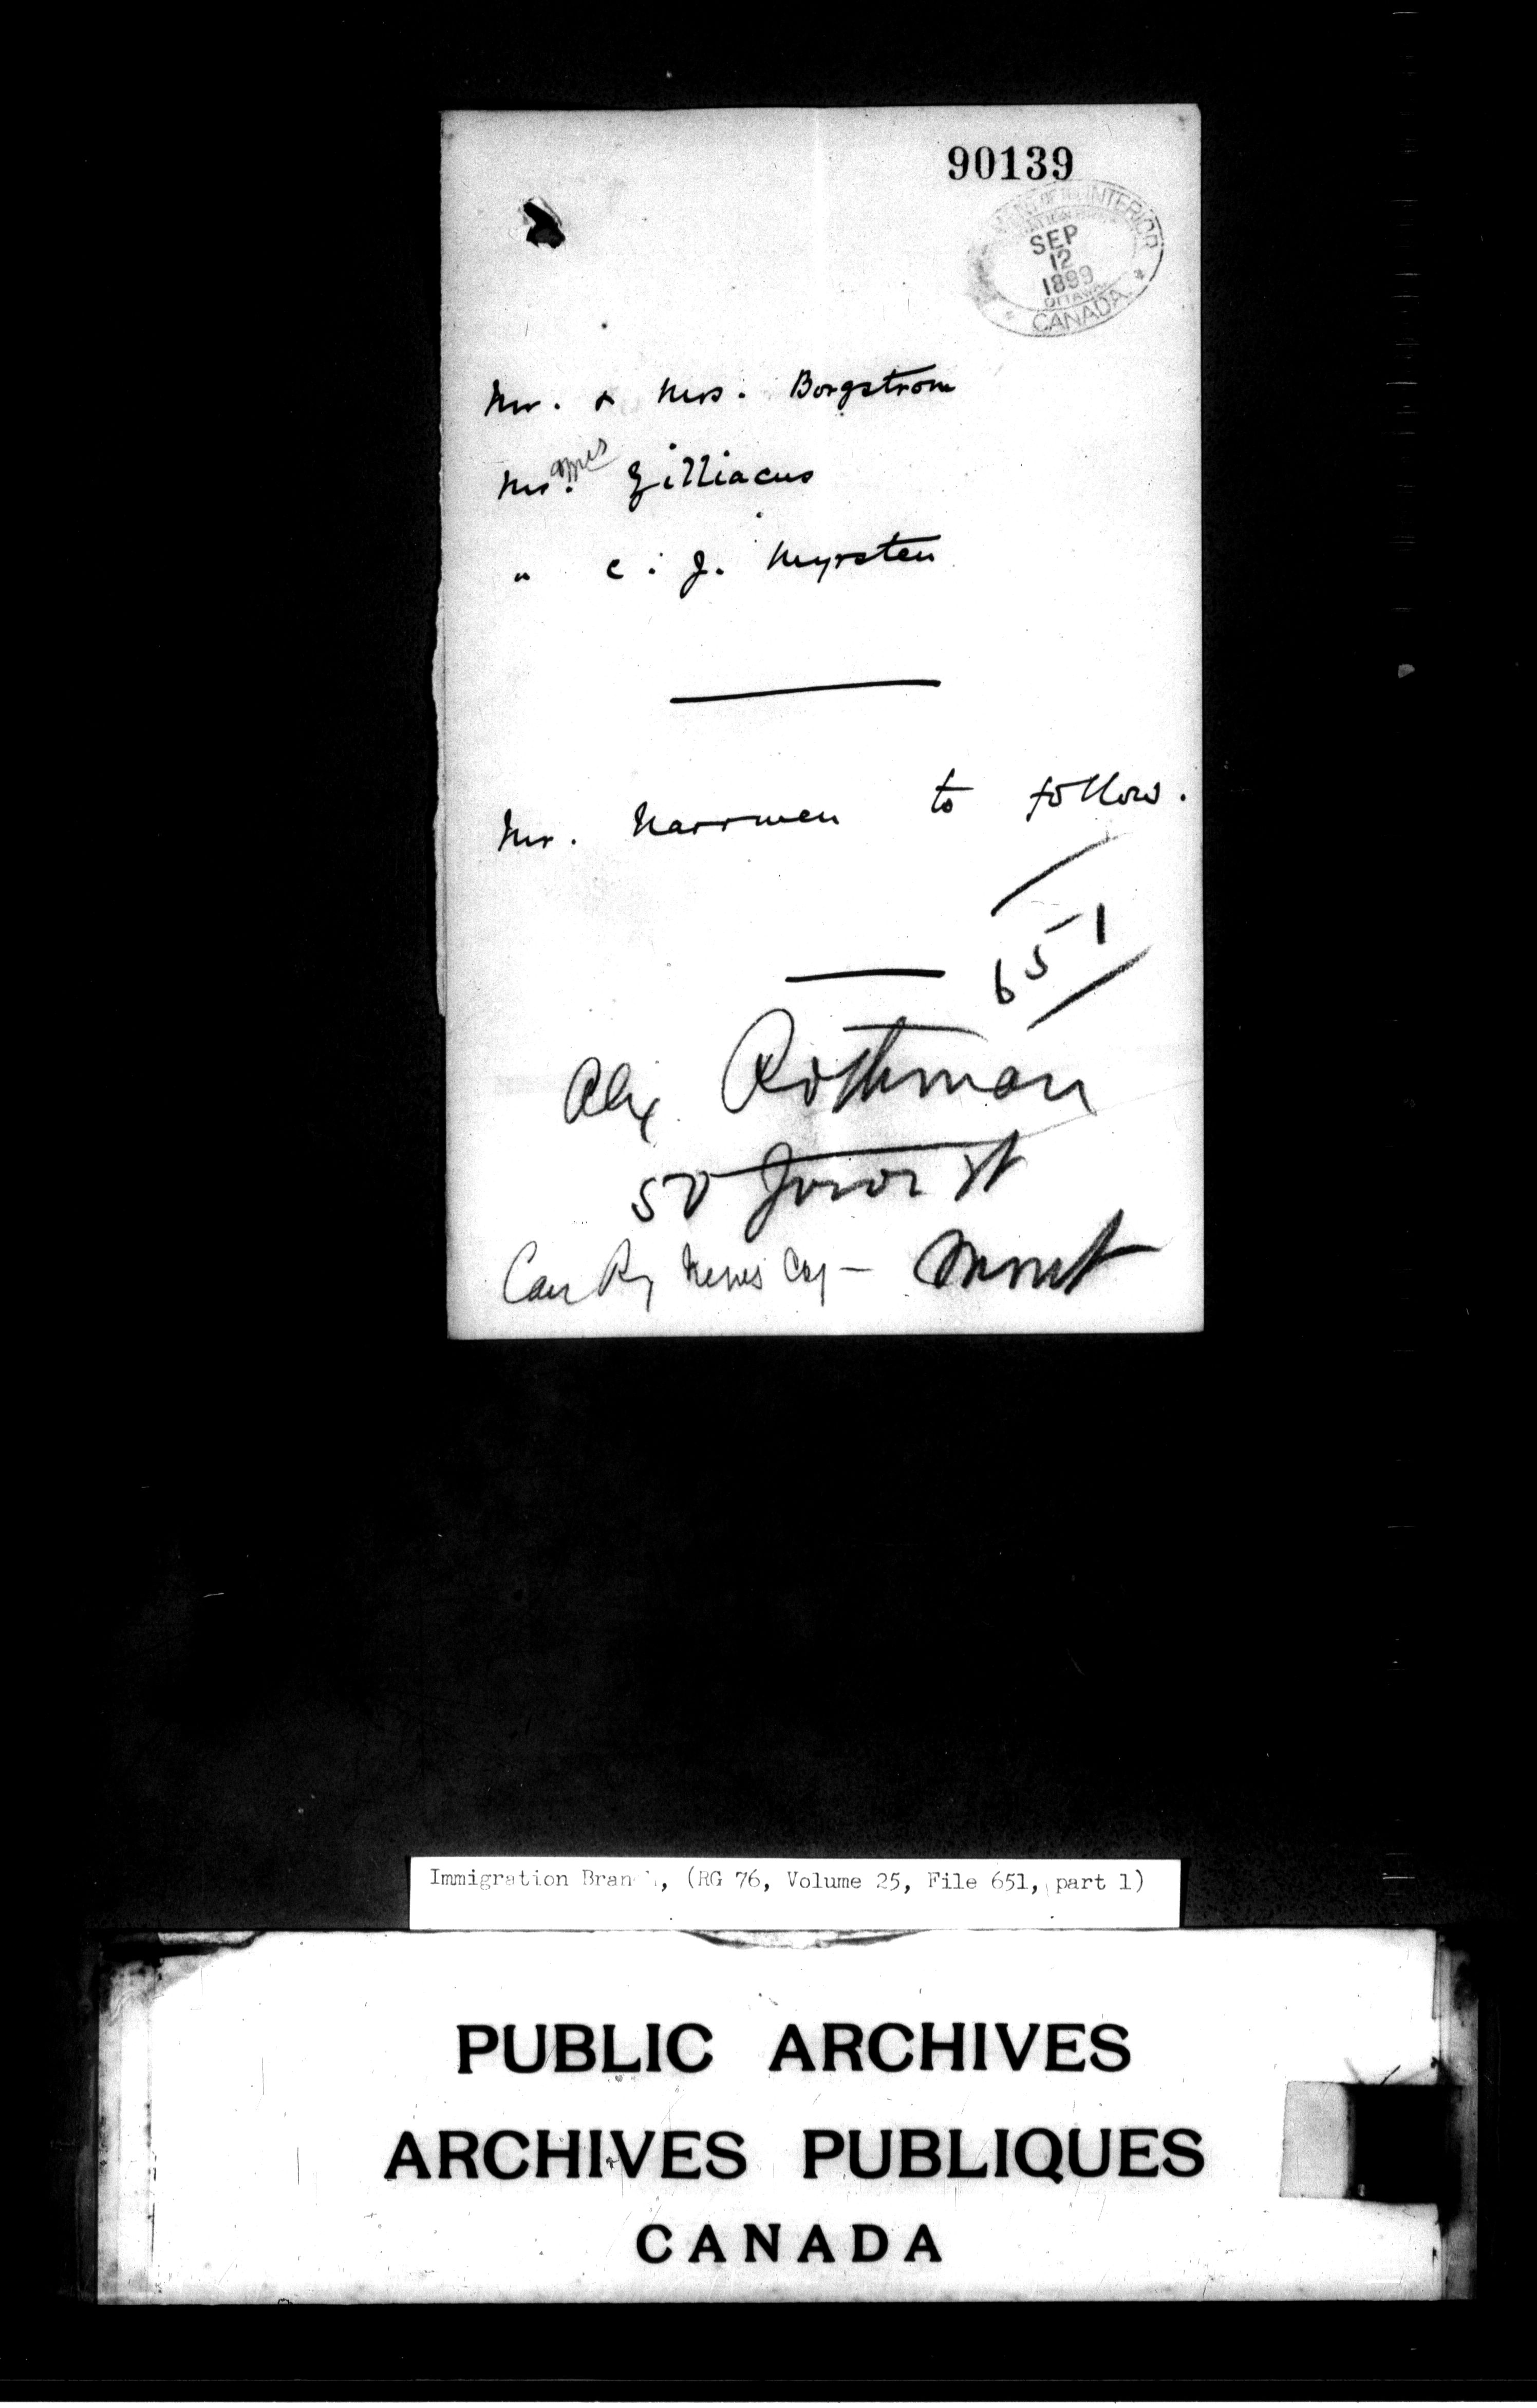 90139
DEPARTMENT OF THE INTERIOR
IMMIGRATION BRANCH
SEP
12
1899
OTTAWA
* CANADA *
Mr. & Mrs. Borgstrom
Mr. & Mrs Zilliacus
" C. J. Myrsten
Mr. Narrmen to follow.
651
Alex Rothman
50 St
Can Ry News Coy – Mont
Immigration Branch, (RG 76, Volume 25, File 651, part 1)
PUBLIC ARCHIVES
ARCHIVES PUBLIQUES
CANADA